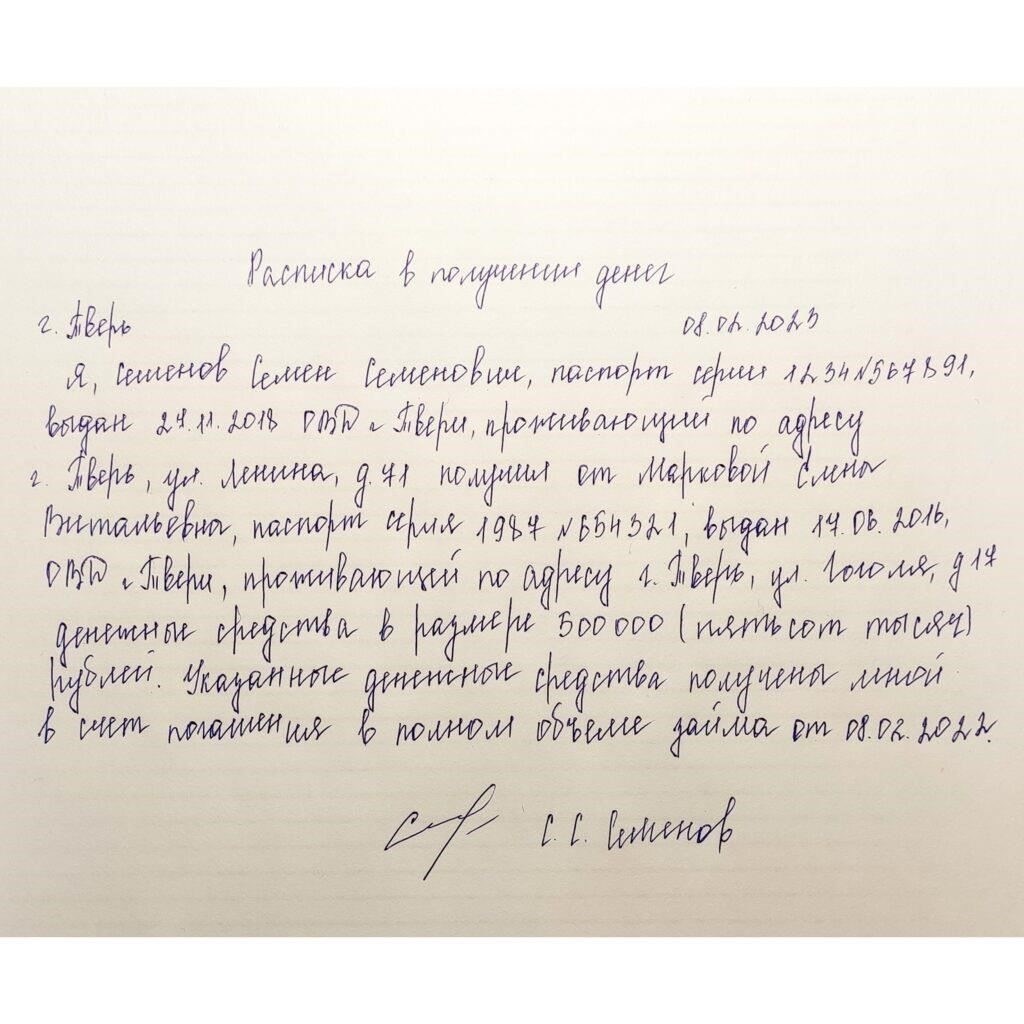 Расписка в получении денег
г. Тверь 08.02.2023
Я, Семенов Семен Семенович, паспорт серии 1234 №567891,
выдан 27.11.2018 ОВД г. Твери, проживающий по адресу
г. Тверь, ул. Ленина, д. 71 получил от Марковой Елены
Витальевны, паспорт серия 1987 №654321, выдан 17.06.2016,
ОВД г. Твери, проживающей по адресу г. Тверь, ул. Гоголя, д 17
денежные средства в размере 500000 (пятьсот тысяч)
рублей. Указанные денежные средства получены мной
в счет погашения в полном объеме займа от 08.02.2022.
С. С. Семенов